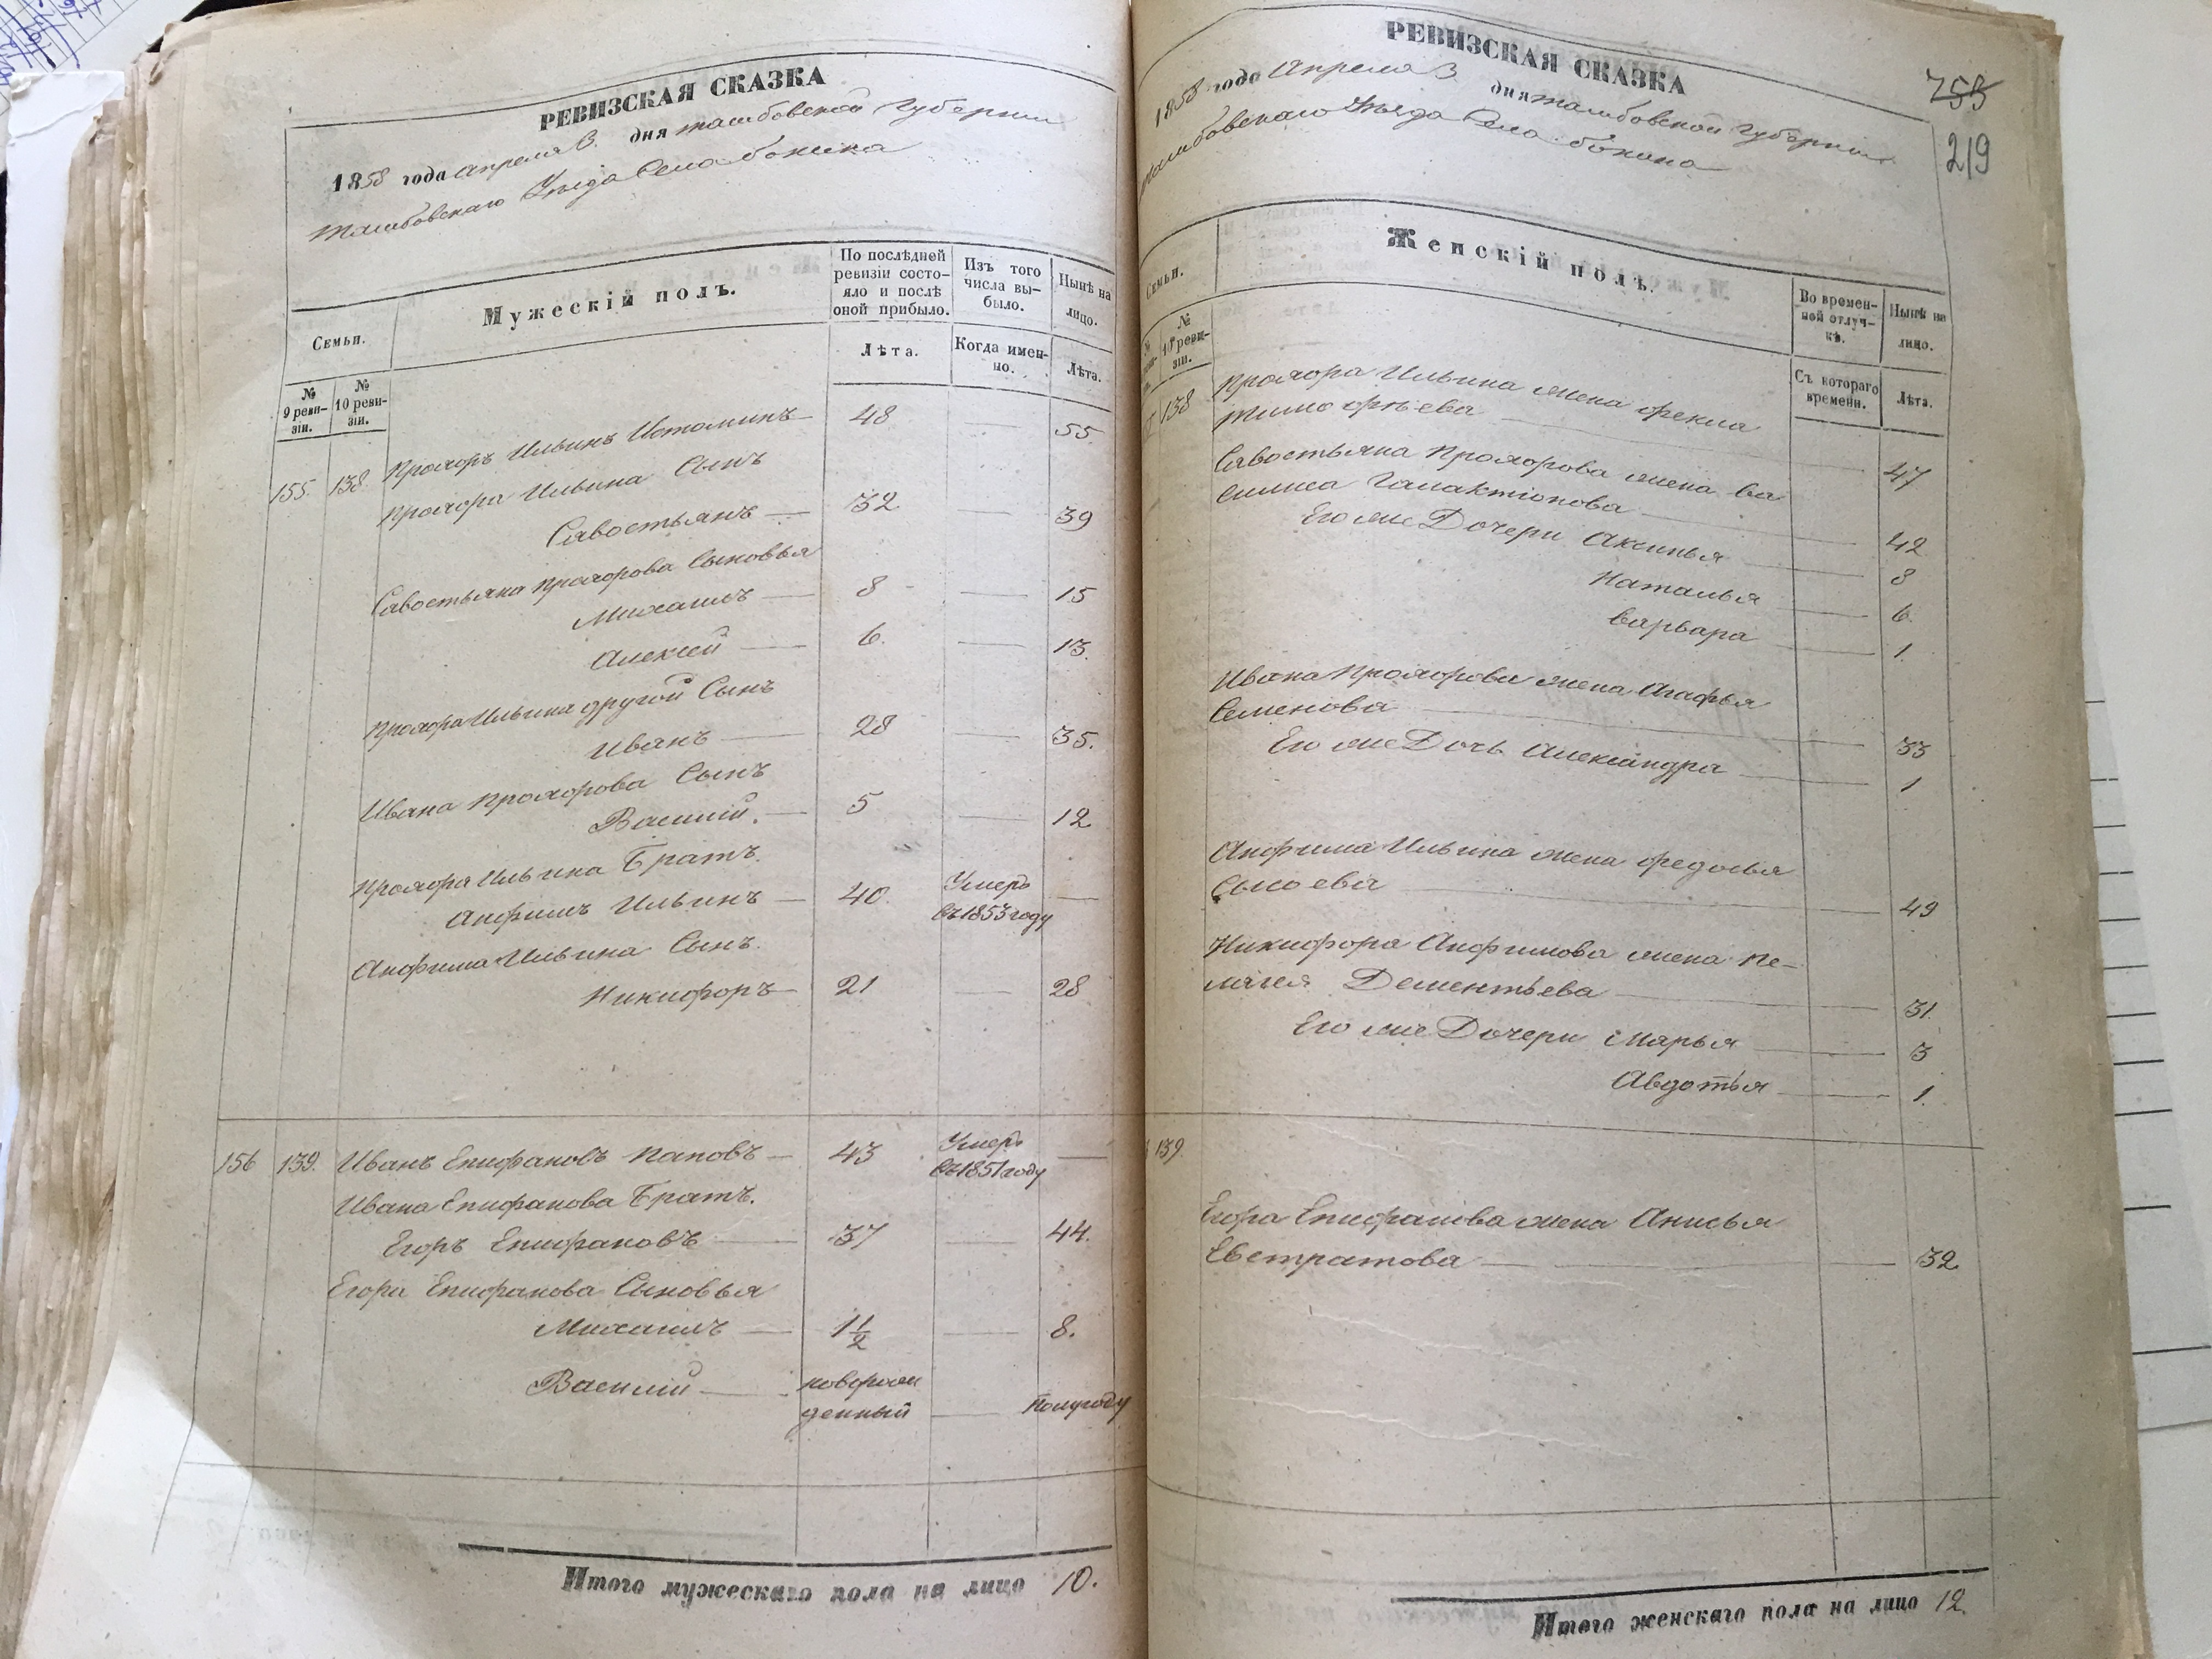 РЕВИЗСКАЯ СКАЗКА
1858 года Апреля 3. дня тамбовской Губернии
тамбовскаго Уѣзда Села бокина
Семьи.
Мужескій полъ.
По послѣдней ревизіи состояло и послѣ оной прибыло.
Изъ того числа выбыло.
Нынѣ на лицо.
№ 9 ревизіи.
№ 10 ревизіи.
Лѣта.
Когда именно.
Лѣта.
155. 138. Прохоръ Ильинъ Истоминъ 48 55.
Прохора Ильина Сынъ
Савостьянъ 32 39
Савостьяна Прохорова Сыновья
Михаилъ 8 15
Алексей 6. 13.
Прохора Ильина другой Сынъ
Иванъ 28 35.
Ивана Прохорова Сынъ
Василий. 5 12
Прохора Ильина Братъ.
Анфимъ Ильинъ 40. Умеръ въ 1853 году
Анфима Ильина Сынъ.
Никифоръ 21 28
156 139. Иванъ Епифановъ Паповъ 43 Умеръ въ 1851 году
Ивана Епифанова Братъ.
Егоръ Епифановъ 37 44.
Егора Епифанова Сыновья
Михаилъ 1 1/2 8.
Василий новорож
денный полугоду
Итого мужескаго пола на лицо 10.
РЕВИЗСКАЯ СКАЗКА
753
219
1858 года Апреля 3 дня тамбовской Губернии
тамбовскаго Уѣзда Села бокина
Семьи.
Женскій полъ.
Во временной отлучкѣ.
Нынѣ на лицо.
№ 10 ревизіи.
Съ котораго времени.
Лѣта.
138 Прохора Ильина жена фекла
тимофѣева 47
Савостьяна Прохорова жена Ва
силиса Галактіонова 42
Его же Дочери Аксинья 8
Наталья 6.
варвара 1.
Ивана Прохорова жена Агафья
Семенова 33
Его же Дочь Александра 1
Анфима Ильина жена федосья
Сысоева 49
Никифора Анфимова жена Пе-
лагея Дементьева 31.
Его же Дочери Марья 3
Авдотья 1.
139.
Егора Епифанова жена Анисья
Евстратова 32
Итого женскаго пола на лицо 12.